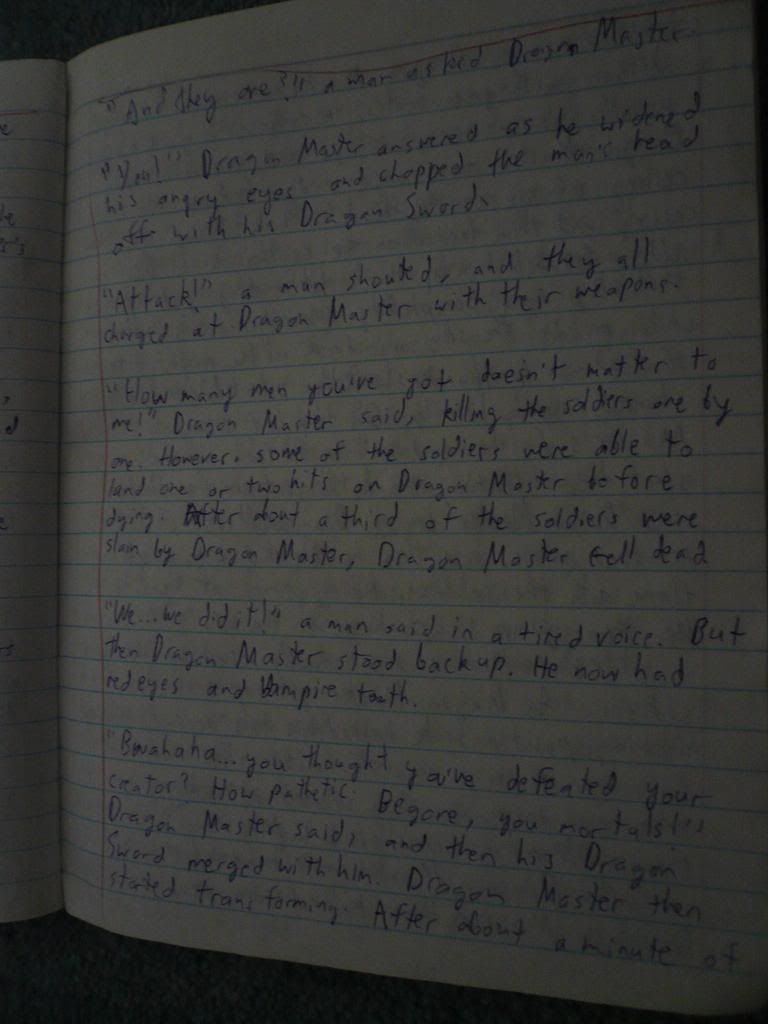 "And they are?!" a man asked Dragon Master.
"You!" Dragon Master answered as he widened
his angry eyes and chopped the man's head
off with his Dragon Sword.
"Attack!" a man shouted, and they all
charged at Dragon Master with their weapons.
"How many men you've got doesn't matter to
me!" Dragon Master said, killing the soldiers one by
one. However, some of the soldiers were able to
land one or two hits on Dragon Master before
dying. After about a third of the soldiers were
slain by Dragon Master, Dragon Master fell dead
"We...we did it!" a man said in a tired voice. But
then Dragon Master stood back up. He now had
red eyes and Vampire teeth.
"Bwahaha... you thought you've defeated your
creator? How pathetic. Begone, you mortals!"
Dragon Master said, and then his Dragon
Sword merged with him. Dragon Master then
started transforming. After about a minute of